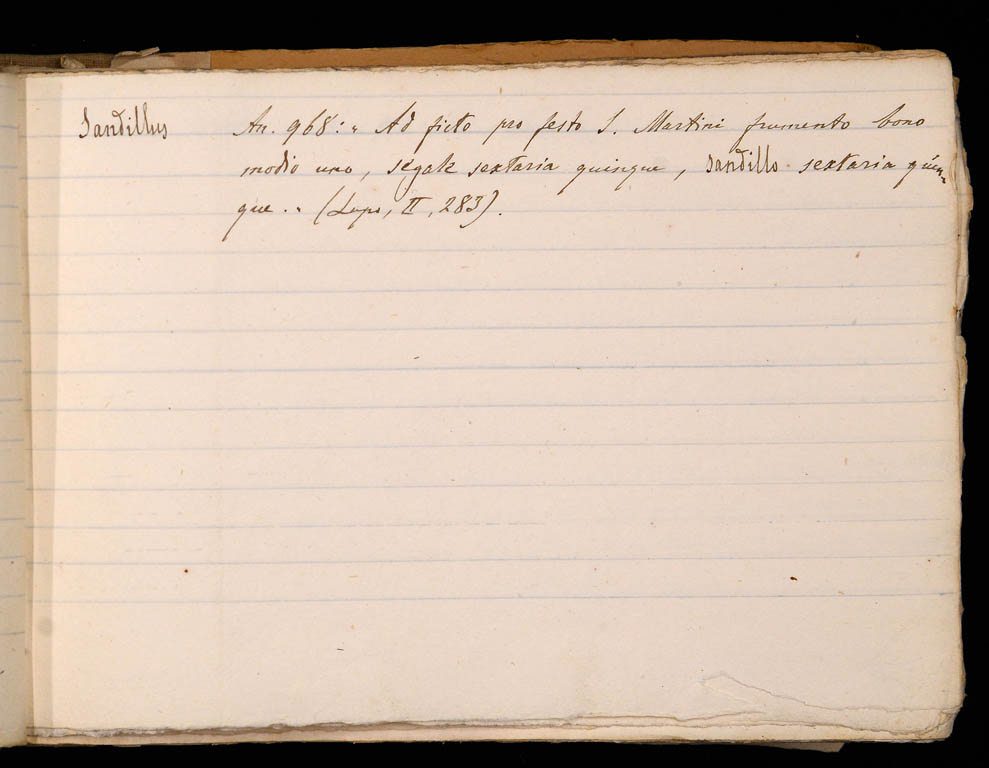 Sandillus An. 968: " Ad ficto pro festo S. Martini frumento bono
modio uno, segale sextaria quinque, Sandillo sextaria quin-
que. " (Lupo, II, 283).